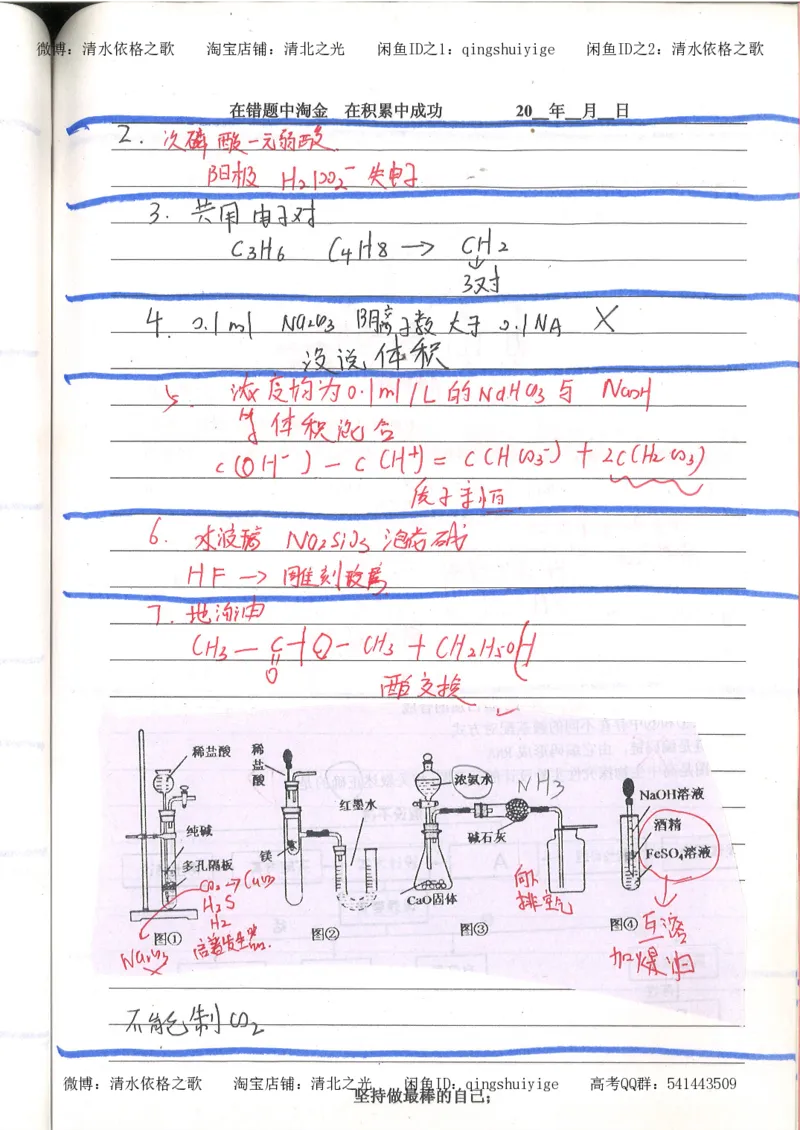 微博：清水依格之歌 淘宝店铺：清北之光 闲鱼ID之1：qingshuiyige 闲鱼ID之2：清水依格之歌
在错题中淘金 在积累中成功 20__年__月__日
2. 次磷酸一元弱酸
阳极 H₂PO₂⁻ 失电子
3. 共用电子对
C₃H₆ C₄H₈ → CH₂
↓
3对
4. 0.1ml Na₂CO₃ 阴离子数大于0.1NA ×
没说体积
5. 浓度均为0.1ml/L的NaHCO₃与 NaOH
等体积混合
c(OH⁻) - c(H⁺) = c(HCO₃⁻) + 2c(H₂CO₃)
质子守恒
6. 水玻璃 Na₂SiO₃ 泡花碱
HF → 雕刻玻璃
7. 地沟油
CH₃—C—O—CH₃ + CH₂H₅OH
O
酯交换
稀盐酸
纯碱
多孔隔板
CO₂ → CaCO₃
H₂S
H₂
启普发生器.
Na₂CO₃
×
图①
稀盐酸
红墨水
镁
图②
浓氨水
NH₃
碱石灰
CaO固体
向下
排空气
图③
NaOH溶液
酒精
FeSO₄溶液
图④
互溶
加煤油
不能制CO₂
微博：清水依格之歌 淘宝店铺：清北之光 闲鱼ID：qingshuiyige 高考QQ群：541443509
坚持做最棒的自己;